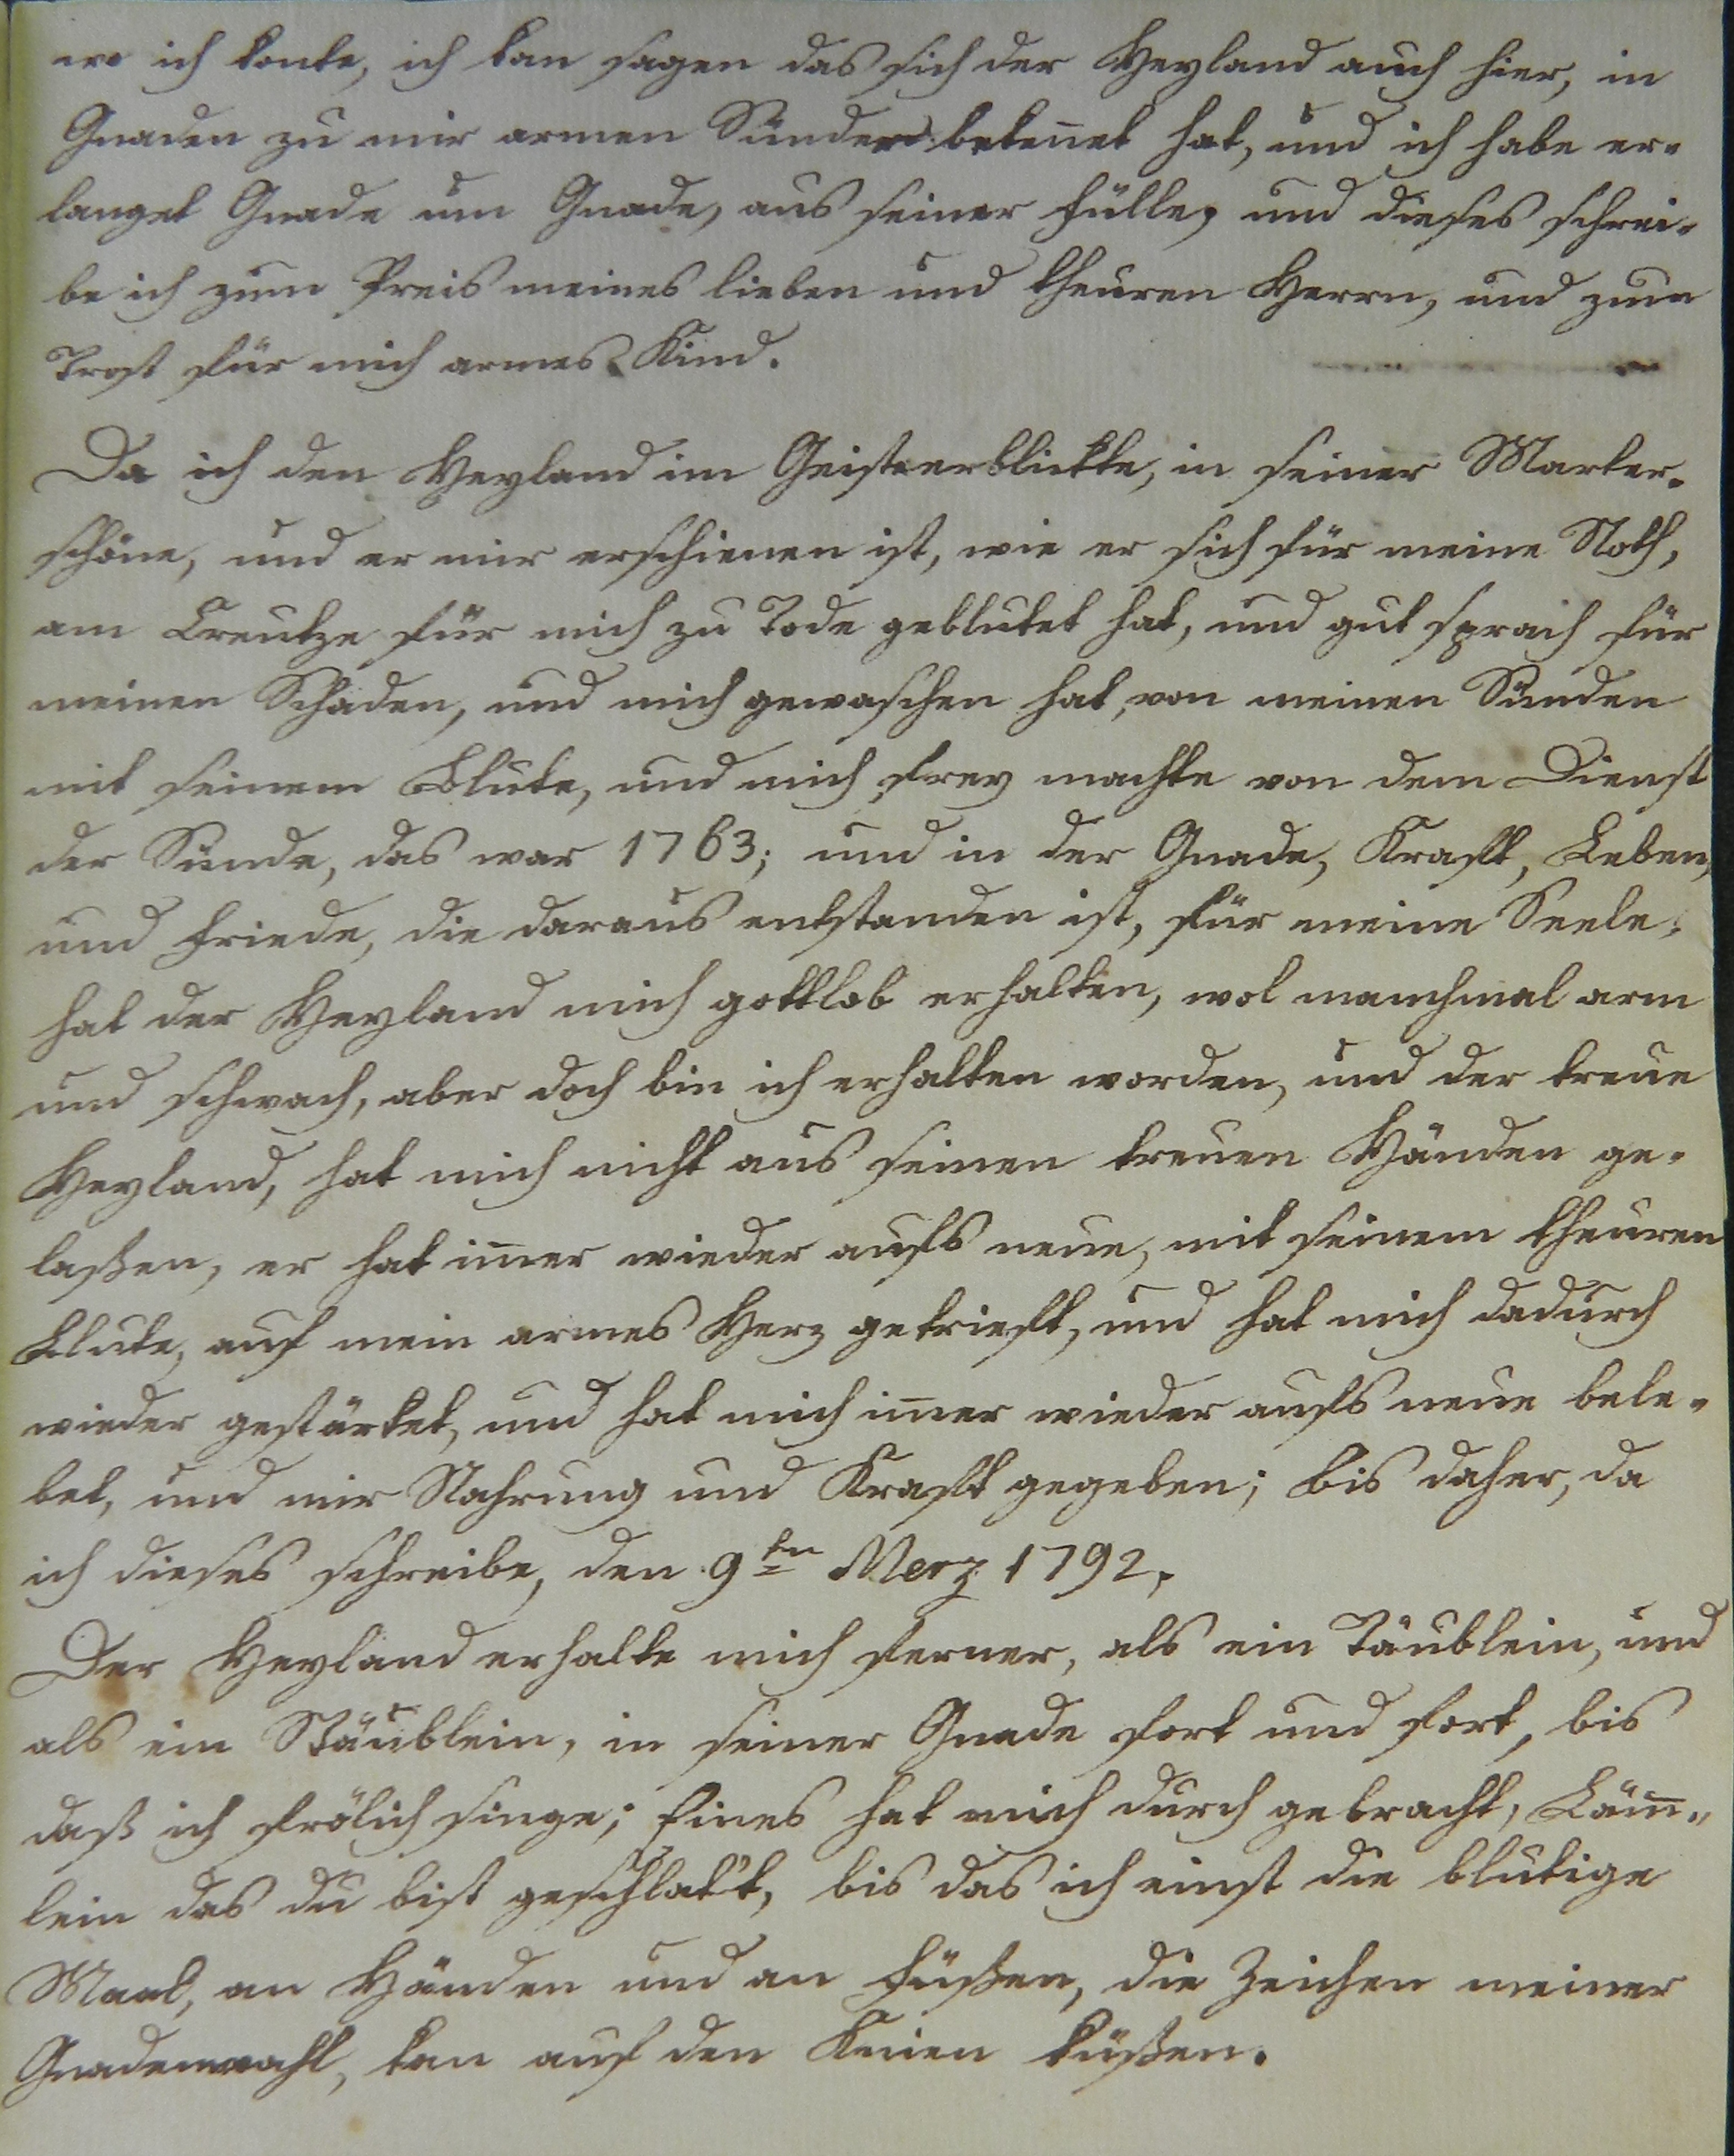 wo ich konte, ich kan sagen das sich der Heyland auch hier, in
Gnaden zu mir armen Sünder beken̄et hat, und ich habe er-
langet Gnade um Gnade, aus seiner Fülle, und dieses schrei-
be ich zum Preis meines lieben und theuren Herrn, und zum
Trost für mich armes Kind.
Da ich den Heyland im Geiste erblickte, in seiner Marter-
schöne, und er mir erschienen ist, wie er sich für meine Noth,
am Creutze für mich zu Tode geblutet hat, und gut sprach für
meinen Schaden, und mich gewaschen hat, von meinen Sünden
mit seinem Blute, und mich frey machte von dem Dienst
der Sünde, das war 1763; und in der Gnade, Kraft, Leben,
und Friede, die daraus entstanden ist, für meine Seele;
hat der Heyland mich gottlob erhalten, wol manchmal arm
und schwach, aber doch bin ich erhalten worden, und der treue
Heyland, hat mich nicht aus seinen treuen Händen ge-
laßen, er hat im̄er wieder aufs neue, mit seinem theuren
Blute, auf mein armes Herz getrieft, und hat mich dadurch
wieder gestärket, und hat mich im̄er wieder aufs neue bele-
bet, und mir Nahrung und Kraft gegeben; bis daher, da
ich dieses schreibe, den 9ten Merz 1792.
Der Heyland erhalte mich ferner, als ein Täublein, und
als ein Stäublein, in seiner Gnade fort und fort, bis
daß ich frölich singe; Eines hat mich durch gebracht, Läm̄-
lein das du bist geschlat't, bis das ich einst die blutige
Maal, an Händen und an Füßen, die Zeichen meiner
Gnadenwahl, kan auf den Knien küßen.